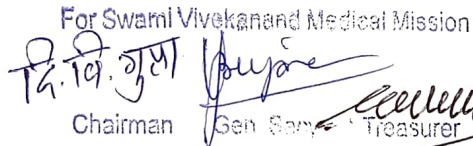 For Swami Vivekanand Medical Mission
दि. वि. गुप्ता
Chairman Gen Treasurer